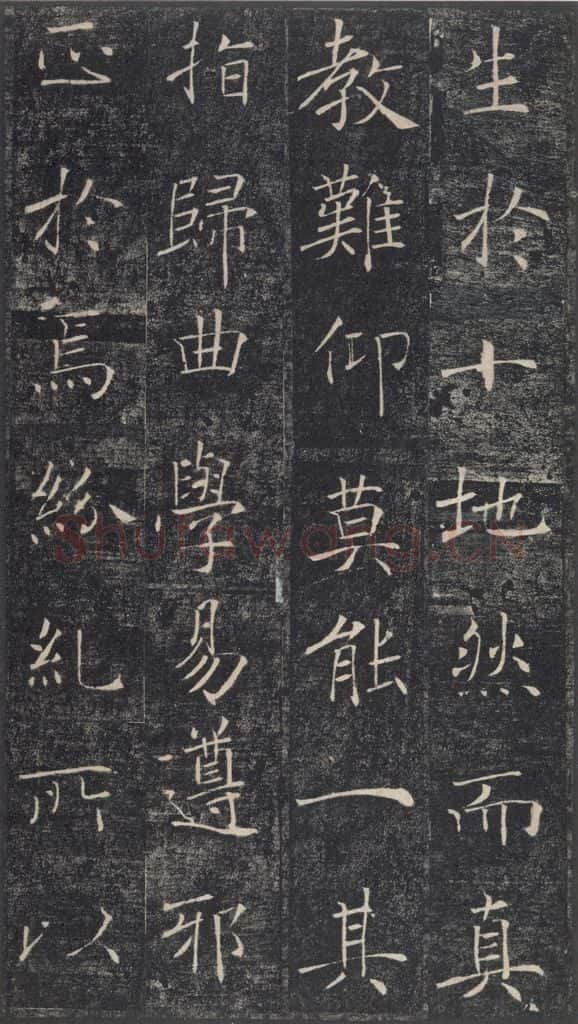 生於十地然而真
教難仰莫能一其
指歸曲學易遵邪
正於焉紛糺所以
Shufawang.CN